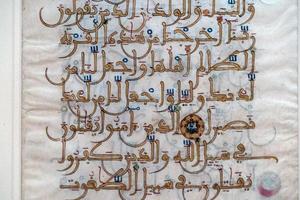 والنسا والولدن الذين يقولون
ربنا اخرجنا من هذه القرية
الظالم اهلها واجعل لنا من
لدنك وليا واجعل لنا من لدنك
نصيرا الذين امنوا يقتلون
في سبيل الله والذين كفروا
يقتلون في سبيل الطغوت